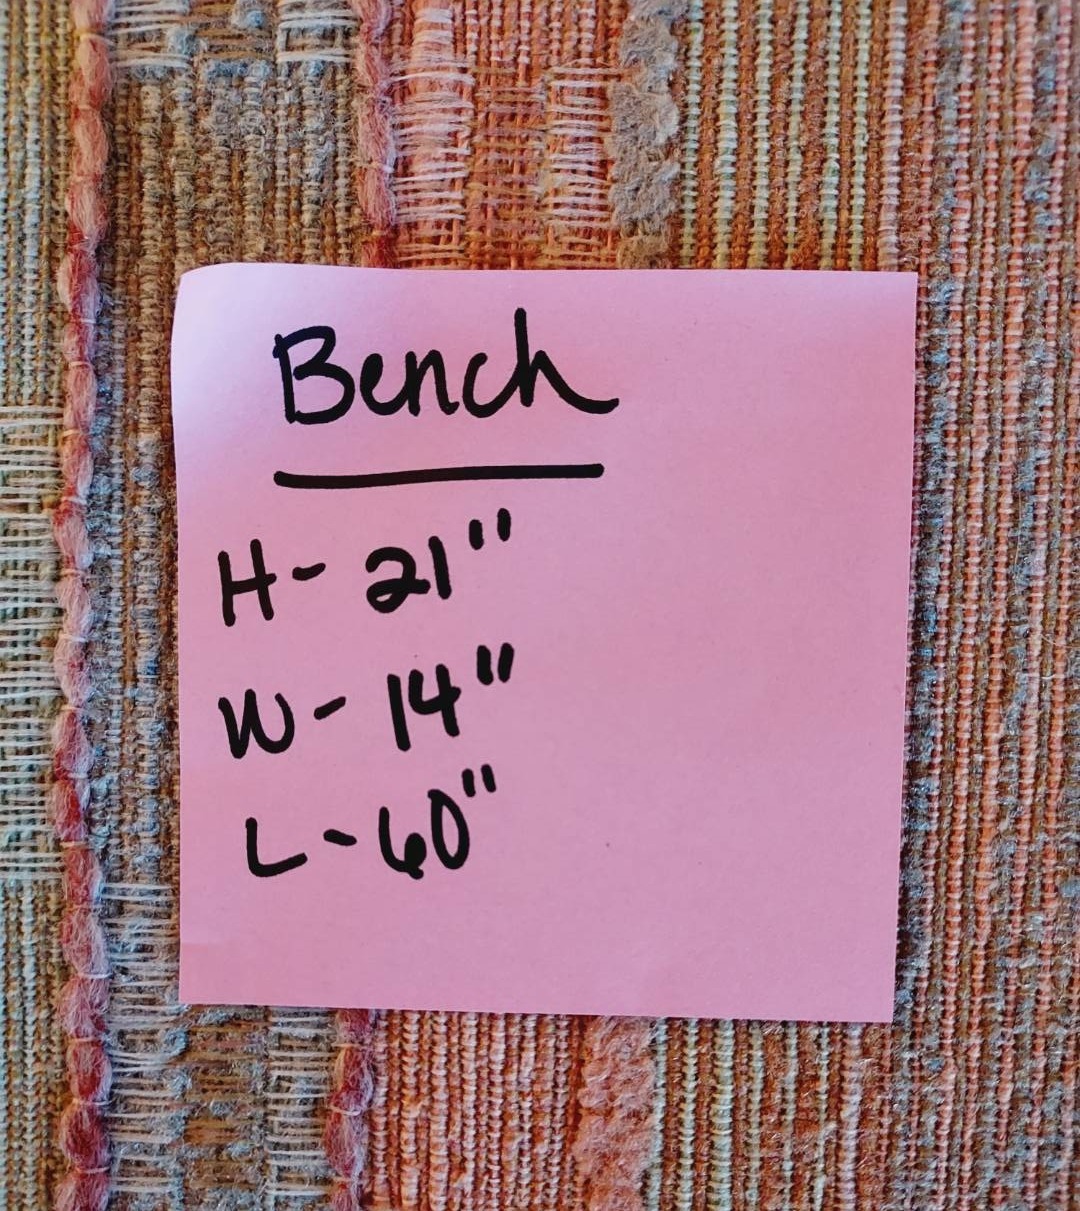 Bench
H- 21"
W- 14"
L- 60"